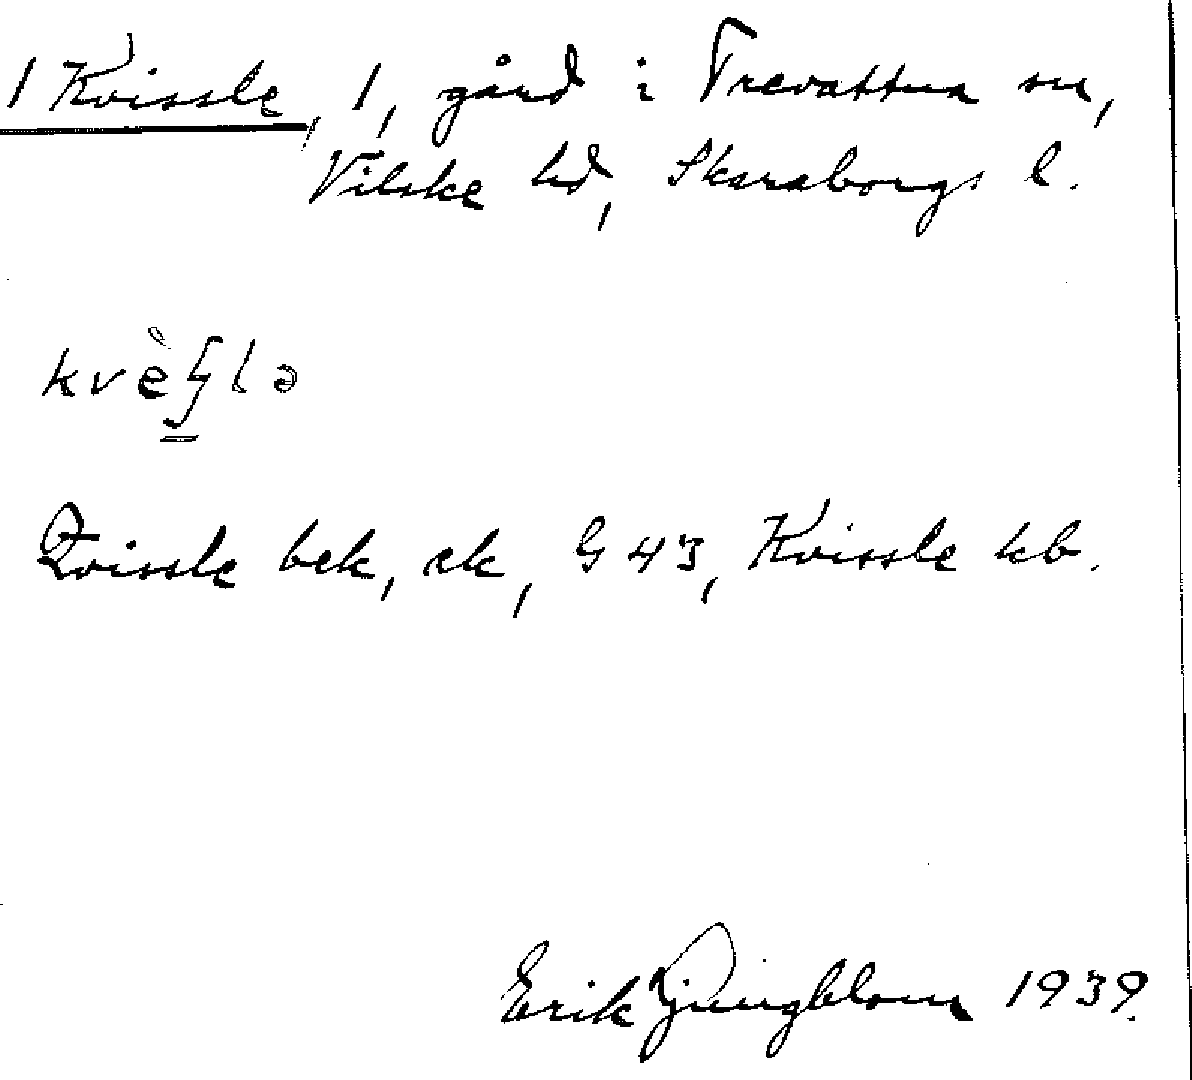 1 Kvissle, 1, gård i Trevattna sn,
Vilske hd, Skaraborgs l.
Qvissle bek, ek, G 43, Kvissle kb.
Erik Ljungblom 1939.